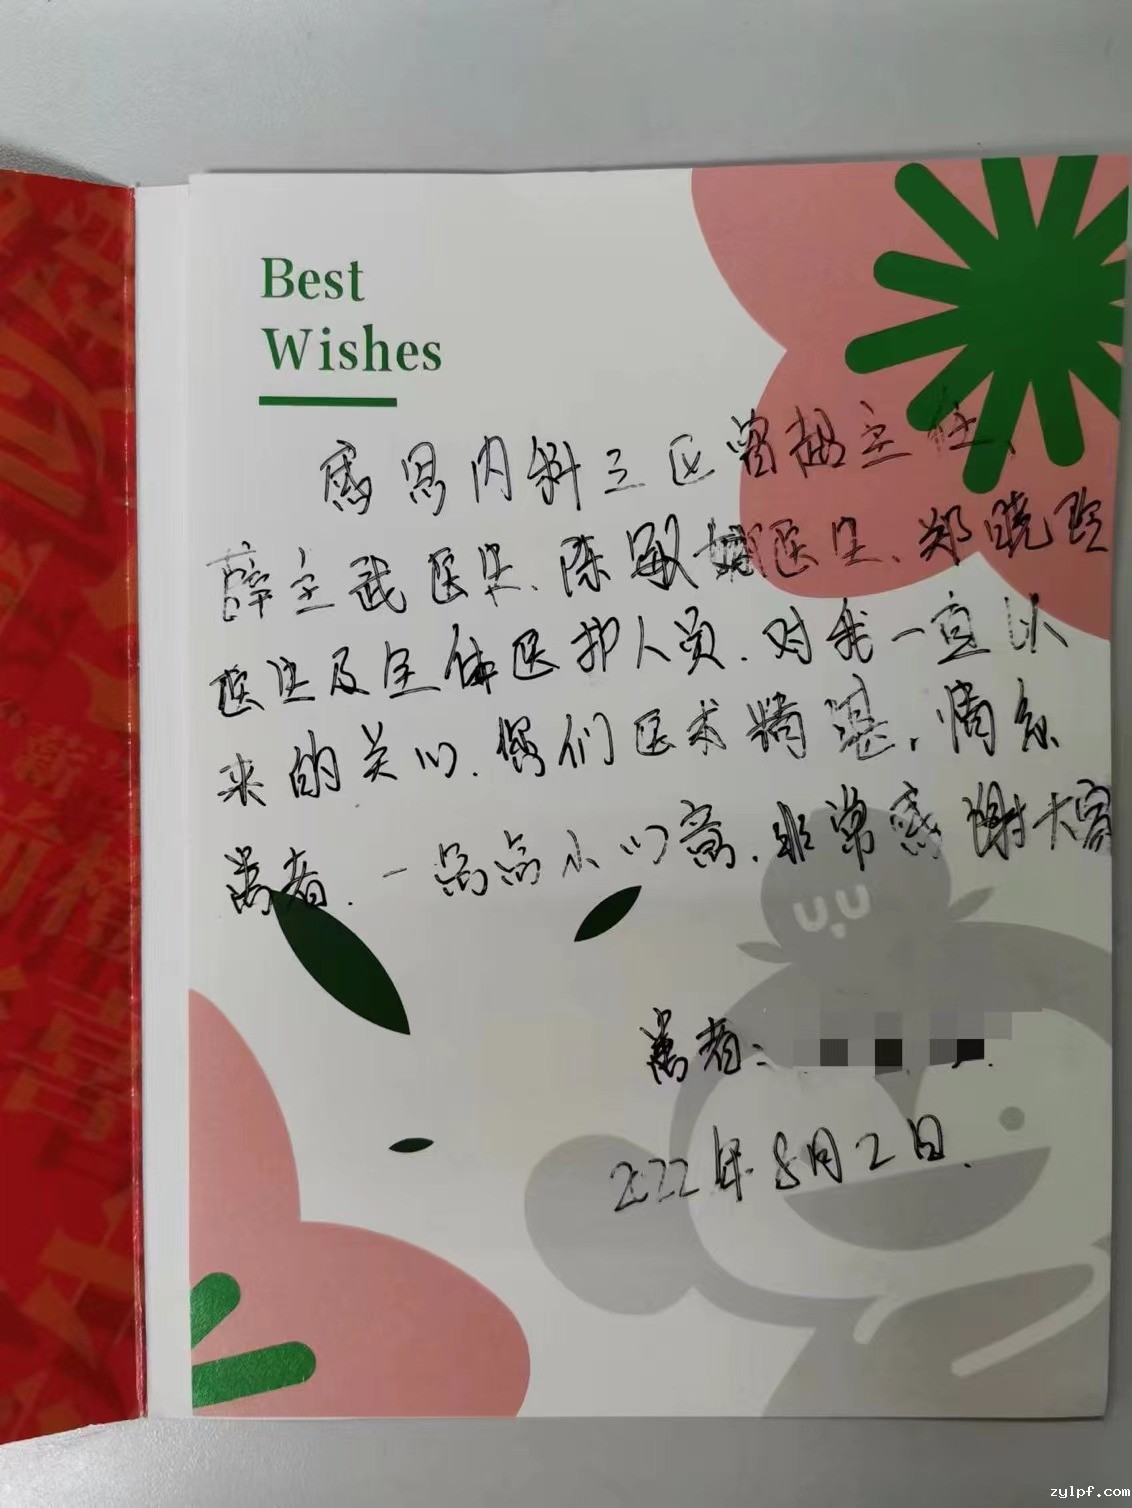 Best
Wishes
感恩内科三区曾超主任、
薛主武医生、陈敏娴医生、郑晓玲
医生及全体医护人员,对我一直以
来的关心,您们医术精湛,情系
患者,一丝不心,非常感谢大家
患者:
2022年8月2日.
zylpf.com